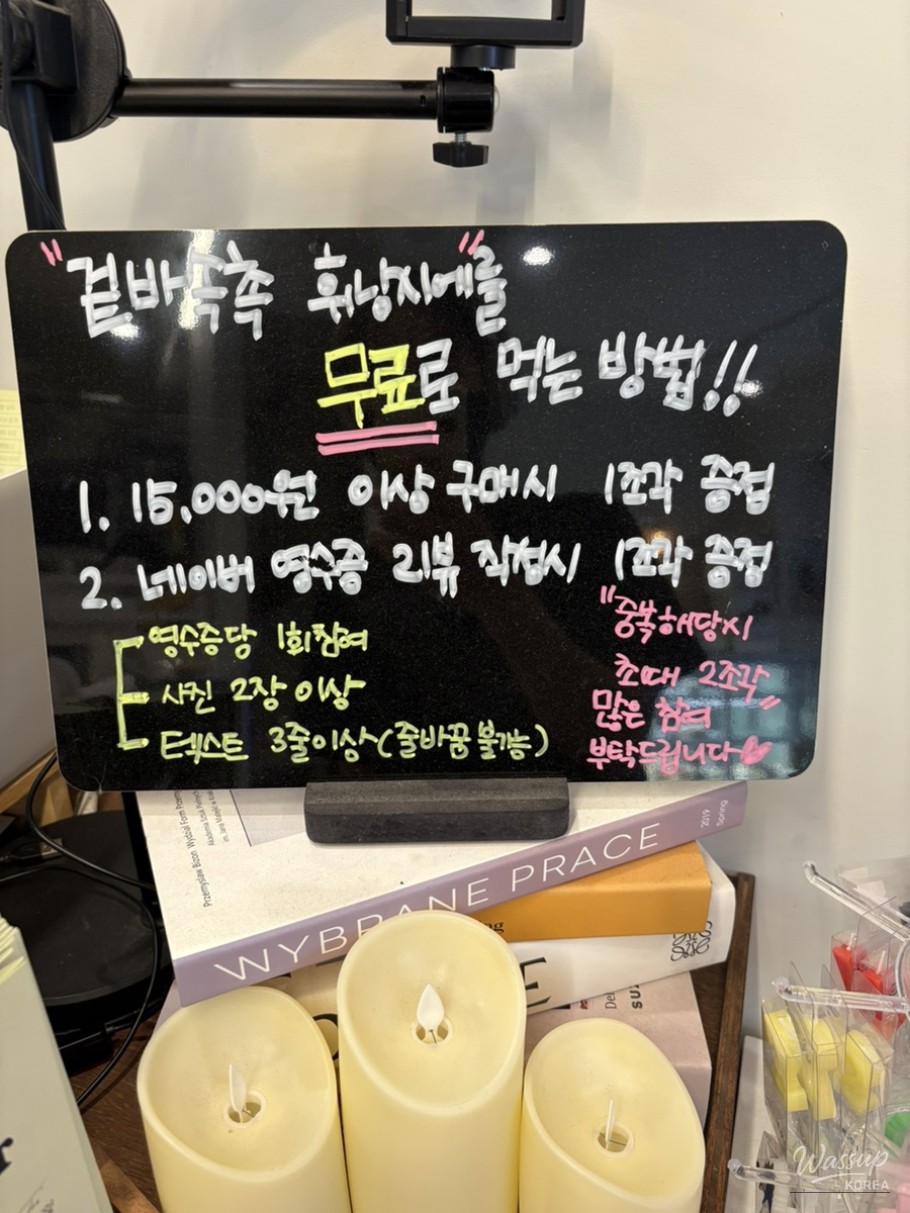 "겉바속촉 휘낭시에"를
무료로 먹는 방법!!
1. 15,000원 이상 구매시 1조각 증정
2. 네이버 영수증 리뷰 작성시 1조각 증정
영수증당 1회 참여
사진 2장 이상
텍스트 3줄이상(줄바꿈 불가능)
"중복해당시
최대 2조각"
많은 참여
부탁드립니다
Przemysław Bizoń Wydział Form Przem
Akademia Sztuk Pięknych
im. Jana Matejki w Krako
WYBRANE PRACE
2019
Spring
Wassup
KOREA